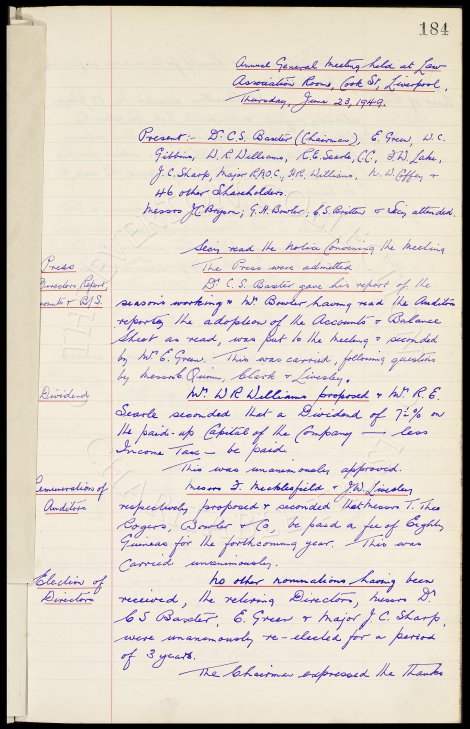 184
Annual General Meeting held at Law
Association Rooms, Cook St, Liverpool,
Thursday, June 23, 1949.
Present:- Dr C.S. Baxter (Chairman), E. Green, W.C.
Gibbins, W.R. Williams, R.E. Searle, C.C., J.W. Lake,
J.C. Sharp, Major R.A.O.C., H.R. Williams, N.W. Coffey &
46 other Shareholders.
Messrs J.C. Bryson, G.H. Bowler, C.S. & Secy attended.
Secy read the Notice Convening the Meeting
Press
The Press were admitted
Directors Report,
Dr C.S. Baxter gave his report of the
B/S.
season's working & Mr. Bowler having read the Auditors
report, the adoption of the Accounts & Balance
Sheet as read, was put to the meeting & seconded
by Mr. E. Green. This was carried, following questions
by Messrs Quinn, Clark & Livesley.
Dividend
Mr. W R Williams proposed & Mr. R.E.
Searle seconded that a Dividend of 7½% on
the paid-up Capital of the Company — less
Income Tax — be paid.
This was unanimously approved.
Remuneration of
Messrs F. Micklesfield & J.W. Livesley
Auditors
respectively proposed & seconded that Messrs T. Theo
Rogers, Bowler & Co, be paid a fee of Eighty
Guineas for the forthcoming year. This was
carried unanimously.
Election of
No other nominations having been
Directors
received, the retiring Directors, Messrs Dr
CS Baxter, E. Green & Major J.C. Sharp,
were unanimously re-elected for a period
of 3 years.
The Chairman expressed the thanks